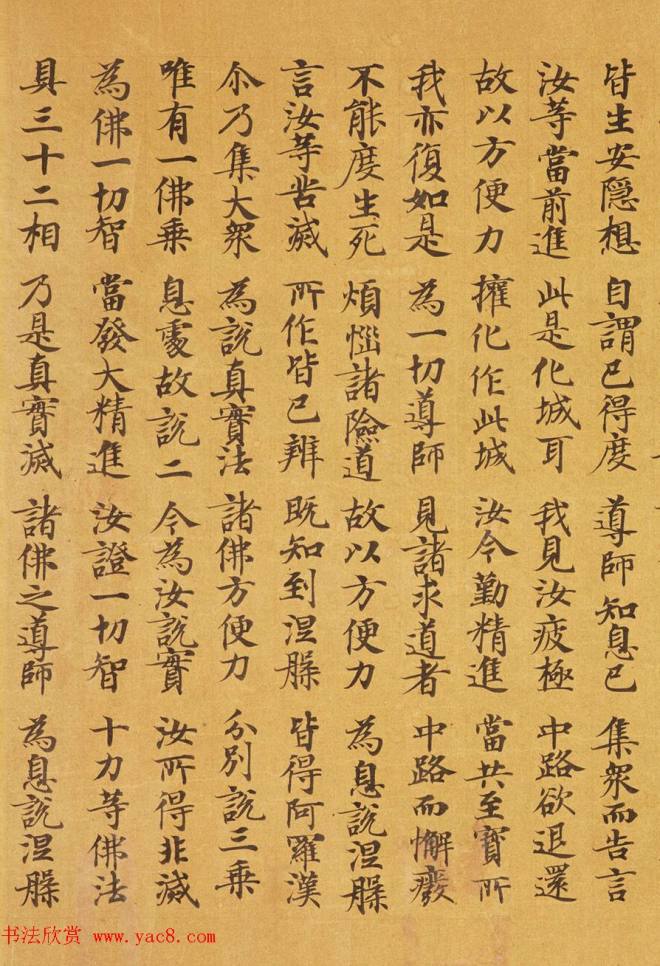 皆生安隱想 自謂已得度 導師知息已 集衆而告言
汝等當前進 此是化城耳 我見汝疲極 中路欲退還
故以方便力 權化作此城 汝今勤精進 當共至寶所
我亦復如是 為一切導師 見諸求道者 中路而懈廢
不能度生死 煩惱諸險道 故以方便力 為息說涅槃
言汝等苦滅 所作皆已辨 既知到涅槃 皆得阿羅漢
尒乃集大衆 為說真實法 諸佛方便力 分別說三乗
唯有一佛乗 息處故說二 今為汝說實 汝所得非滅
為佛一切智 當發大精進 汝證一切智 十力等佛法
具三十二相 乃是真實滅 諸佛之導師 為息說涅槃
书法欣赏 www.yac8.com